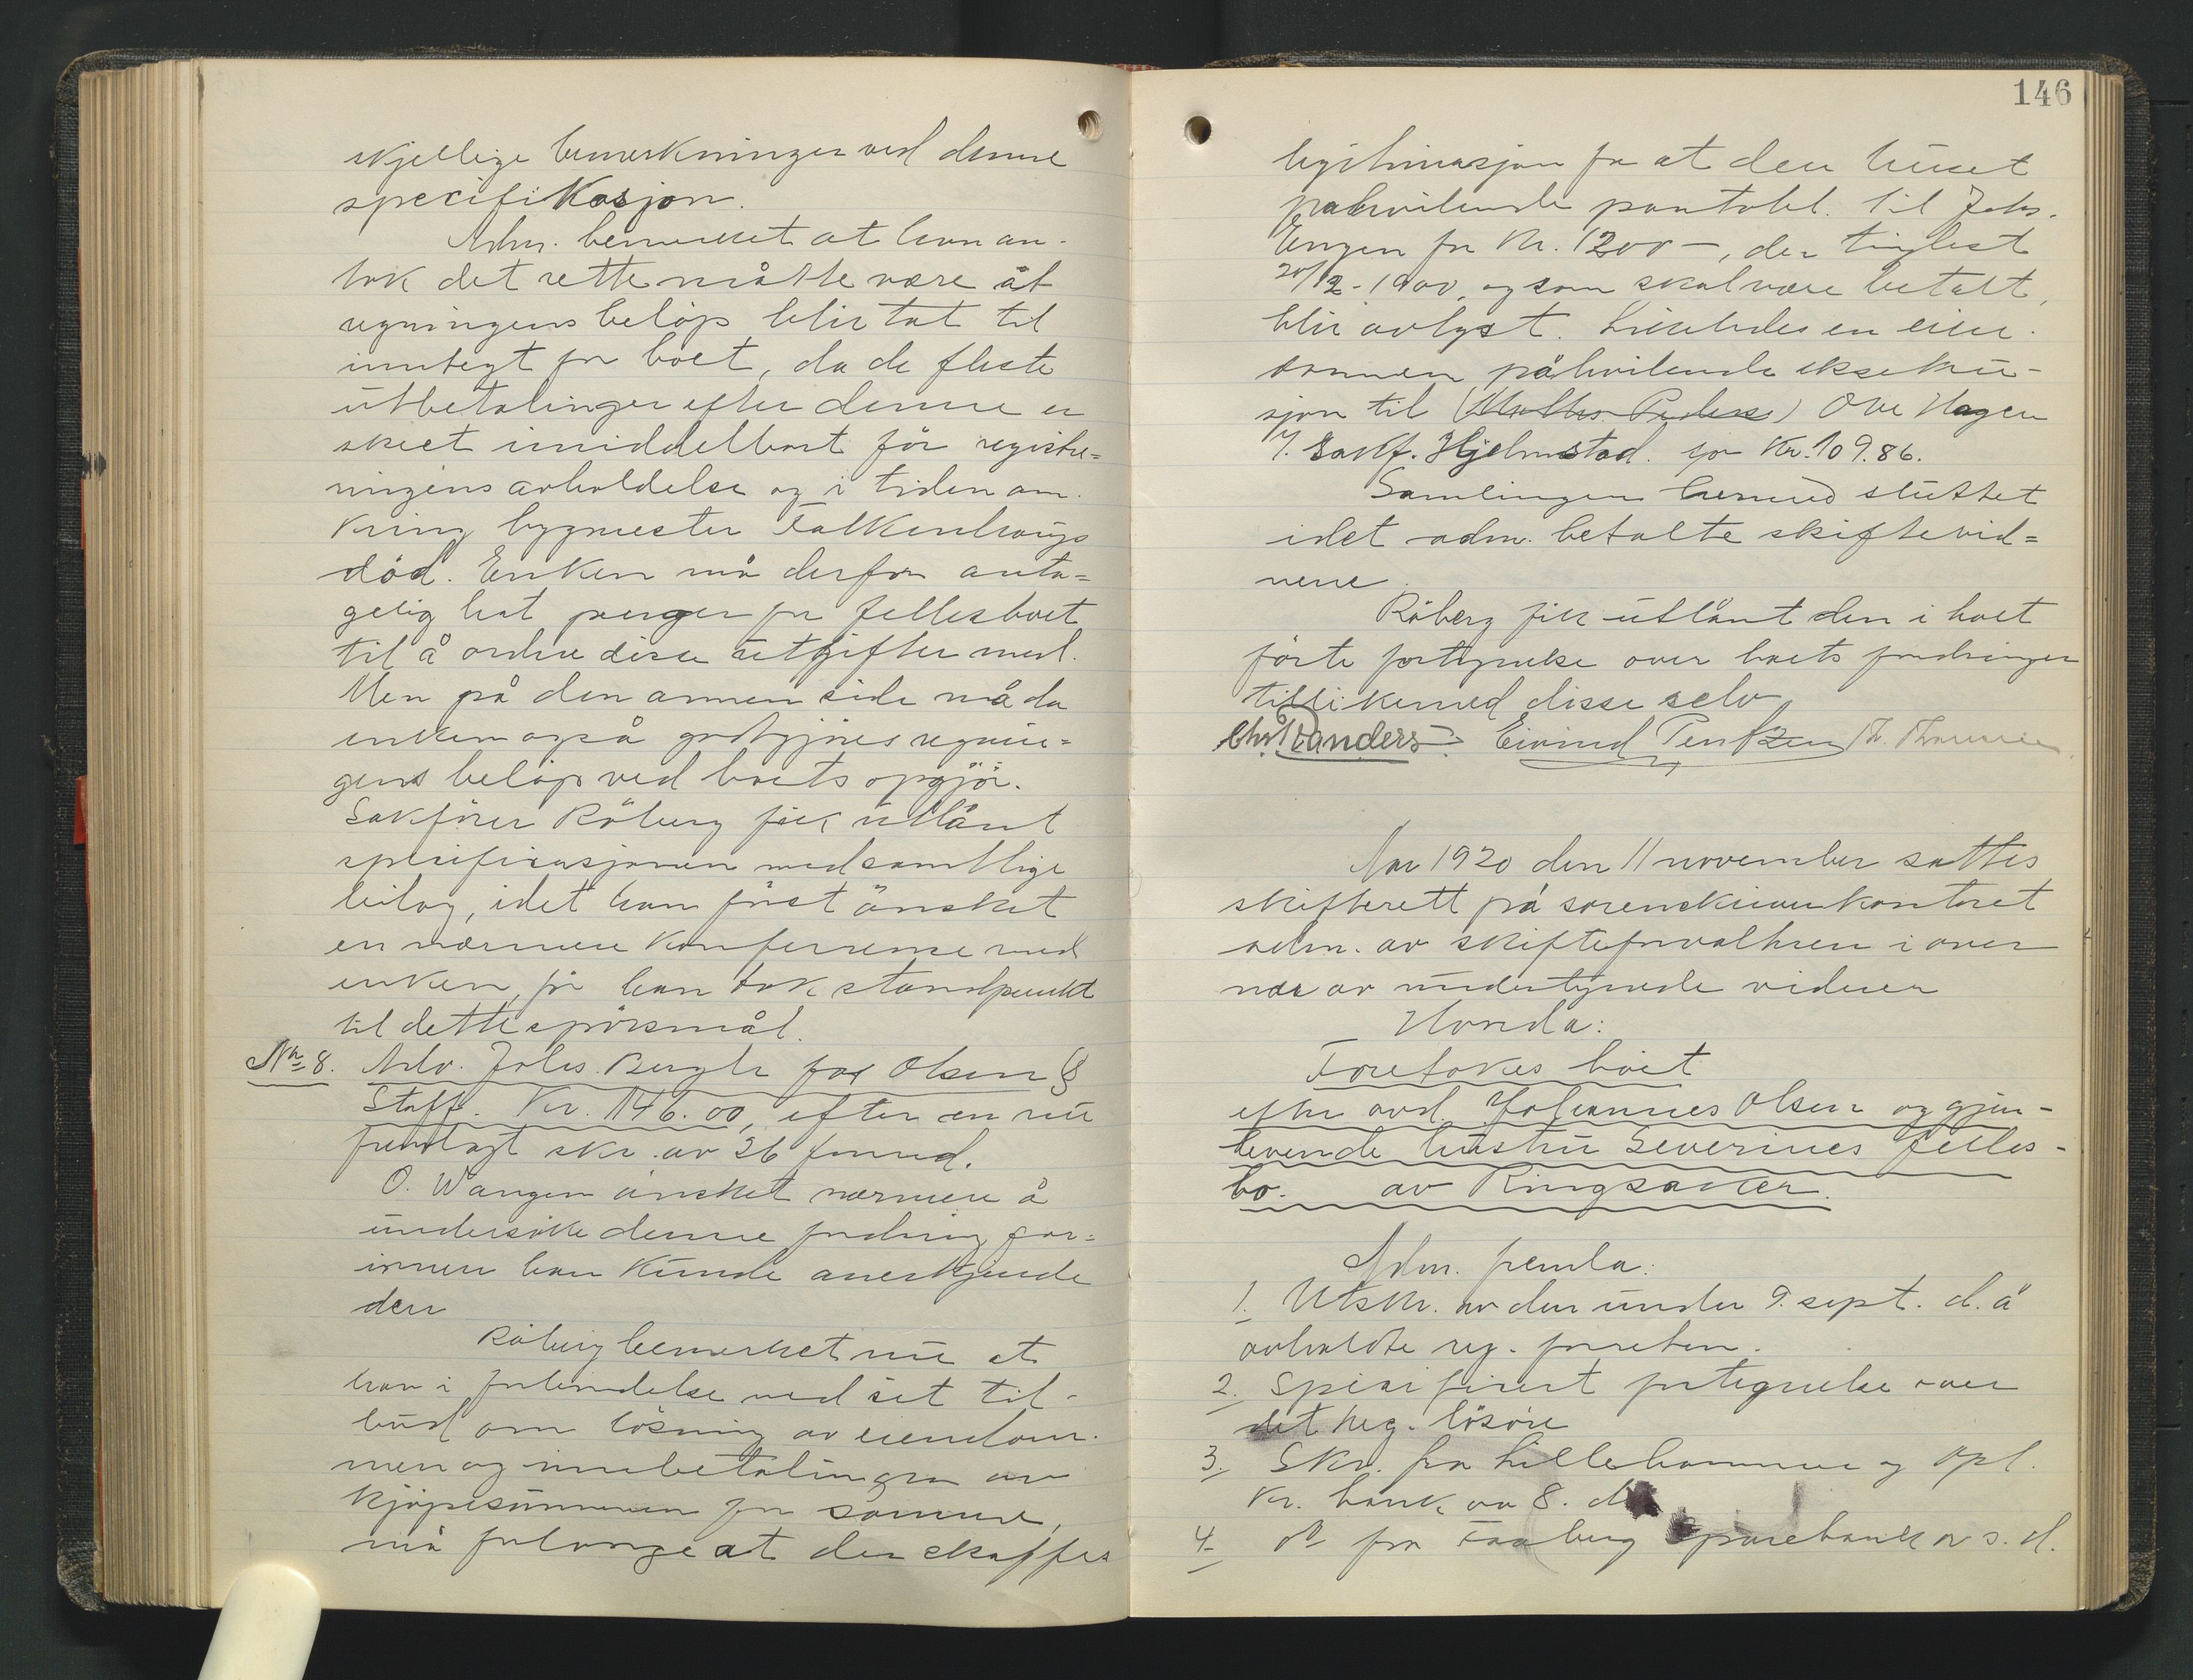 skjellige bemerkninger ved denne
specifikasjon.
Adm. bemerket at han an-
tok det rette måtte være åt
regningens beløp blir tat til
inntegt for boet, da de fleste
utbetalinger efter denne er
skeet imiddelbart før registre=
ringens avholdelse og i tiden om-
kring bygmester Falkenhaugs
död. Enken må derfor anta=
gelig hat penger fra fellesboet
til å ordne disse utgifter med.
Men på den annen side må da
enken også godtgjøres regnin=
gens beløp ved boets opgjör.
Sakfører Råberg fikk utlånt
spesifikasjonen med samtlige
bilag, idet han först önsket
en nærmere konferense med
enken, før han tok standpunkt
til dette spörsmål.
No 8. Adv. Johs. Bergh for Olsen &
Staff. Kr. 1146.00, efter en nu
fremlagt skr. av 26 f. mnd.
O. Wangen önsket nærmere å
undersöke denne fordring for=
innen han kunde anerkjende
den
Råberg bemerket nu at
han i forbindelse med sit til-
bud om lösning av eiendom-
men og innbetalingen av
kjöpesummen for samme,
må forlange at der skaffes
146
legitimasjon for at den huset
påhvilende pantobl. til Johs.
Engen for Kr. 1200 -, der tinglest
20/12 - 1900, og som skal være betalt,
blir avlyst. Likeledes en eien-
dommen påhvilende ekseku-
sjon til Ove Hagen
v/ Sakf. Hjelmstad. for Kr. 109.86.
Samlingen hermed sluttet
idet adm. betalte skiftevid=
nene.
Råberg fik utlånt den i boet
förte fortegnelse over boets fordringer
tillikemed disse selv
Chr. Randers Eivind Pentzen
Aar 1920 den 11 november sattes
skifterett på sorenskriverkontoret
adm. av skifteforvalteren i over
nær av undertegnede vidner
Hvorda:
Foretokes boet
efter avd. Johannes Olsen og gjen-
levende hustru Severines felles-
bo. av Ringsaker.
Adm. fremla:
1. Utskr. av den under 9. sept. d. å
avholdte reg. forretn.
2. Spesifisert fortegnelse over
det reg. lösöre
3. Skr. fra Lillehammer og Opl.
Kr. bank av 8. d
4. do fra Faaberg Sparebank av s. d.